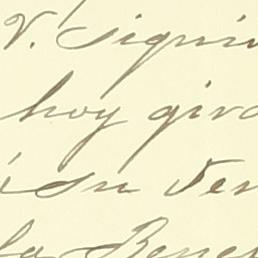 V. siguie
hoy giro
á su ten
la Bene